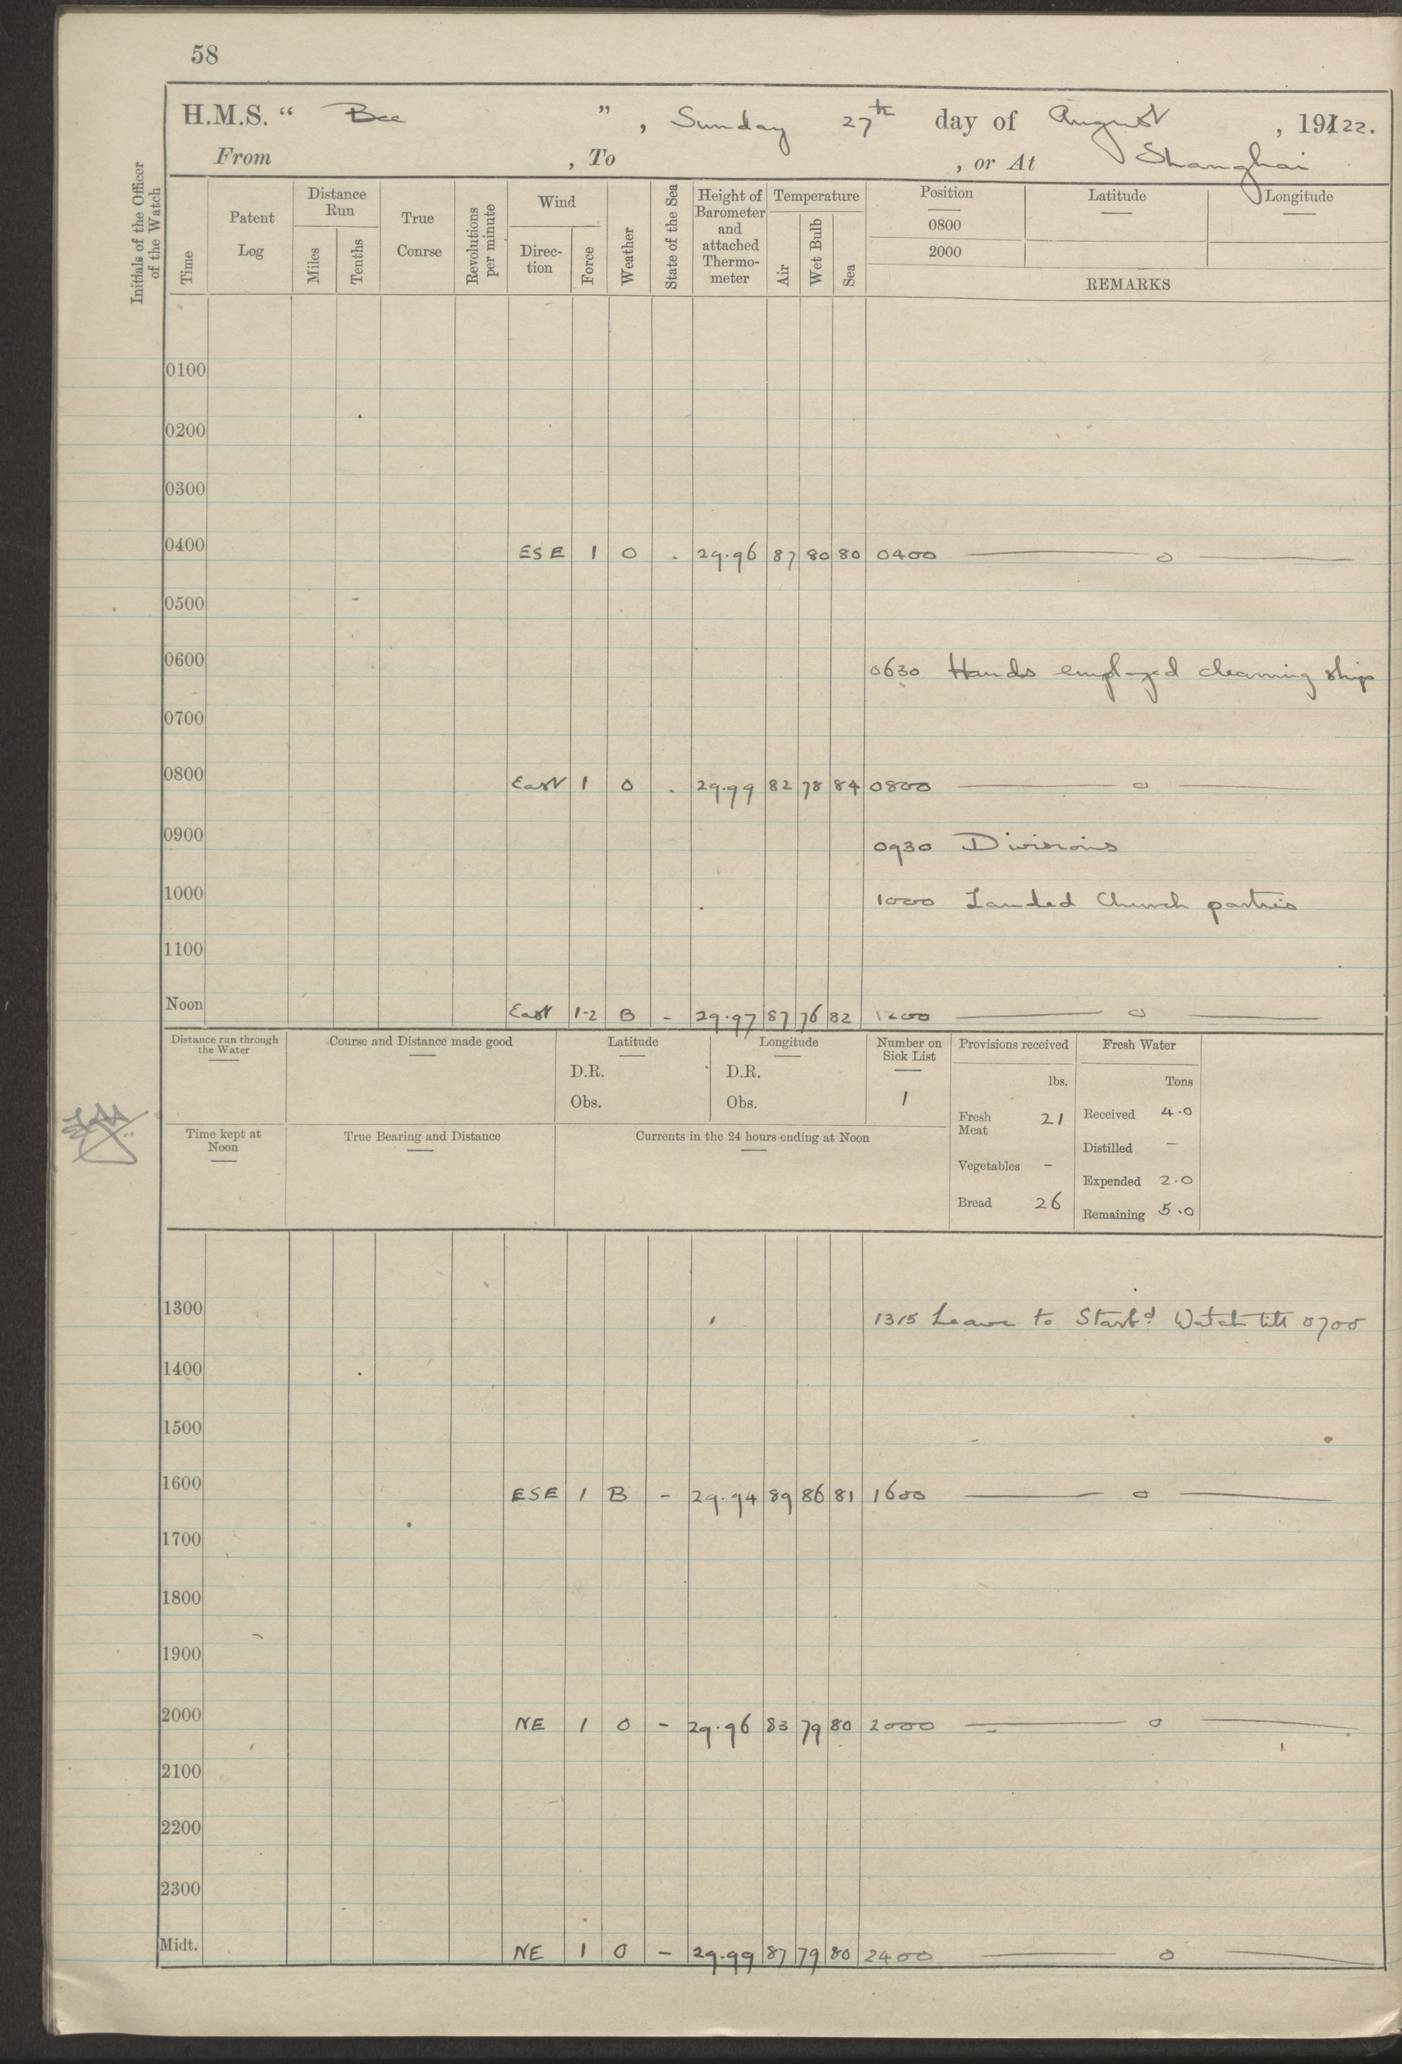 58
H.M.S. “ Bee ” , Sunday 27th day of August , 19122.
From , To , or At Shanghai
Initials of the Officer of the Watch
Time
Patent Log
Distance Run
Miles
Tenths
True Conrse
Revolutions per minute
Wind
Direc- tion
Force
Weather
State of the Sea
Height of Barometer and attached Thermo- meter
Temperature
Air
Wet Bulb
Sea
Position
Latitude
Longitude
0800
2000
REMARKS
0100
0200
0300
0400 ESE 1 O - 29.96 87 80 80 0400 —— o ——
0500
0600
0630 Hands employed cleaning ship
0700
0800 East 1 O - 29.99 82 78 84 0800 —— o ——
0900
0930 Divisions
1000
1000 Landed Church parties
1100
Noon East 1-2 B - 29.97 87 76 82 1200 —— o ——
Distance run through the Water
Course and Distance made good
Latitude
D.R.
Obs.
Longitude
D.R.
Obs.
Number on Sick List
1
Provisions received
lbs.
Fresh Meat 21
Vegetables -
Bread 26
Fresh Water
Tons
Received 4.0
Distilled -
Expended 2.0
Remaining 5.0
Time kept at Noon
True Bearing and Distance
Currents in the 24 hours ending at Noon
1300
1315 Leave to Starbd Watch till 0700
1400
1500
1600 ESE 1 B - 29.94 89 86 81 1600 —— o ——
1700
1800
1900
2000 NE 1 O - 29.96 83 79 80 2000 —— o ——
2100
2200
2300
Midt. NE 1 O - 29.99 87 79 80 2400 —— o ——